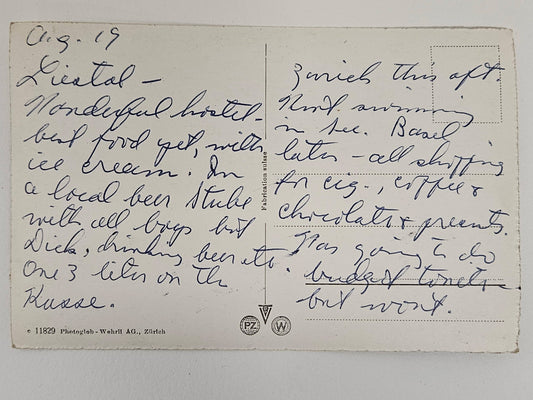 Aug. 19
Liestal -
Wonderful hostel -
best food yet, with
ice cream. In
a local beer Stube
with all boys but
Dick, drinking beer etc.
One 3 liter on the
Kasse.
Zurich this aft.
Went swimming
in See. Basel
later - all shopping
for cig., coffee &
chocolate & presents.
Was going to do
budget tonite
but won't.
Fabrication suisse
c 11829 Photoglob-Wehrli AG., Zürich
PZ
W